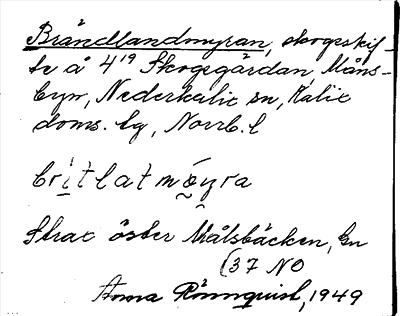 Brändlandmyran, skogsskif-
te å 4¹⁹ Skogsgärdan, Måns-
byn, Nederkalix sn, Kalix
doms. lg, Norrb. l
britlatmøyra
Strax öster Målsbäcken,
(37 NO
Anna Rönnquist, 1949